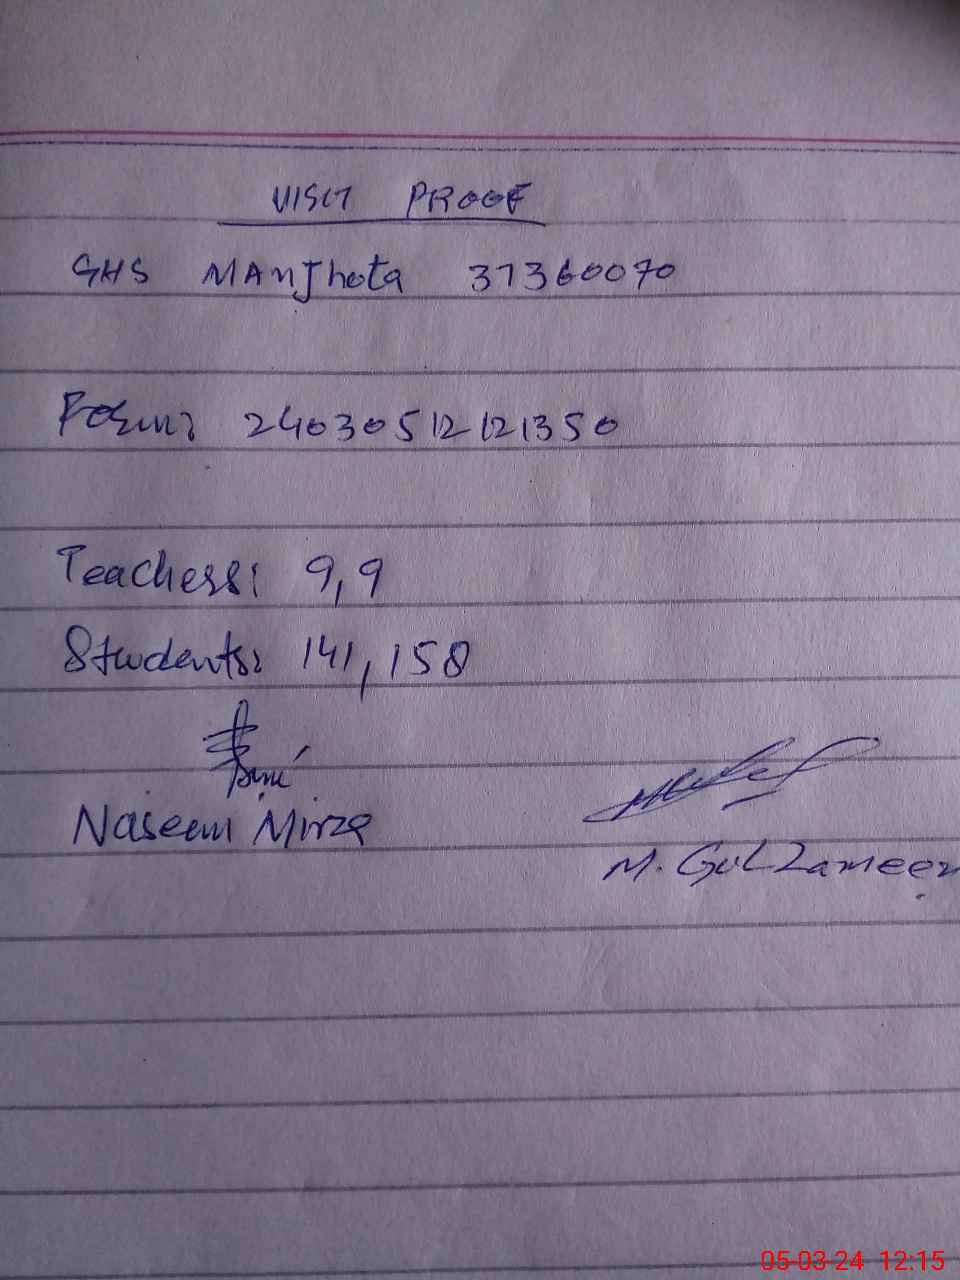 VISIT PROOF
GHS MANJhota 37360070
Form: 24030512121350
Teachers: 9,9
Students: 141,158
Naseem Mirza
M. Gul Zameer
05-03-24 12:15